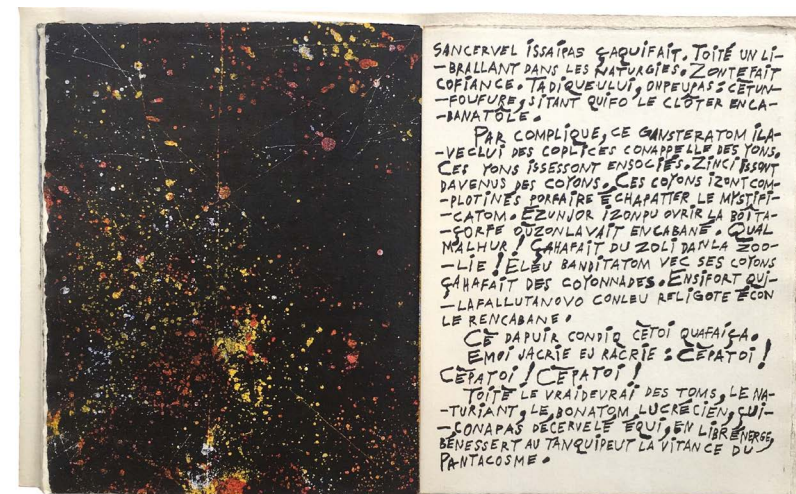 SANCERVEL ISSAIPAS ÇAQUIFAIT. TOITÉ UN LI-
-BRALLANT DANS LES NATURGIES. ZONTEFAIT
COFIANCE. TADIQUEULUI, ONPEUPAS : CÉTUN-
-FOUFURE, SITANT QUIFO LE CLÔTER ENCA-
-BANATÔLE.
PAR COMPLIQUE, CE GANSTERATOM ILA-
-VECLUI DES COPLICES CONAPPELLE DES YONS.
CES YONS ISSESSONT ENSOCIÉS. ZINCI ISSONT
DAVENUS DES COYONS. CES COYONS IZONT COM-
-PLOTINÉS PORFAIRE ÉCHAPATTER LE MYSTIFI-
-CATOM. EZUNJOR IZONPU OVRIR LA BOÎTA-
-ÇORFE OUZONLAVAIT ENCABANÉ. QUAL
MALHUR ! ÇAHAFAIT DU ZOLI DANLA ZOO-
-LIE ! ELEU BANDITATOM VEC SES COYONS
ÇAHAFAIT DES COYONNADES. ENSIFORT QUI-
-LAFALLUTANOVO CONLEU RELIGOTE ÉCON
LE RENCABANE.
CÉ DAPUIR CONDIQ CÉTOI QUAFAIÇA.
EMOI JACRIE EJ RACRIE : CÉPATOI !
CÉPATOI ! CÉPATOI !
TOITÉ LE VRAIDEVRAI DES TOMS, LE NA-
-TURIANT, LE BONATOM LUCRÉCIEN, ÇUI-
-ÇONAPAS DÉCERVELÉ ÉQUI, EN LIBRÉNERGE,
BÉNESSERT AUTANQUIPEUT LA VITANCE DU
PANTACOSME.